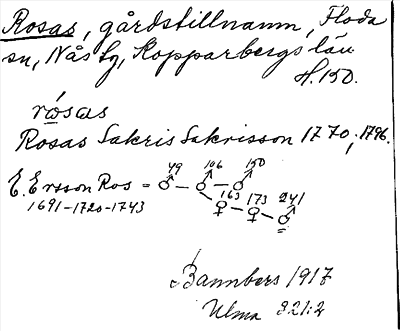 Rosas, gårdstillnamn, Floda
sn, Nås hg, Kopparbergs län
H. 150.
rósas
Rosas Sakris Sakrisson 1770, 1796.
49 106 150
E. Ersson Ros = ♂ — ♂ — ♂
163 173 241
1691-1720-1743 ♀ — ♀ — ♂
Bannbers 1917
Ulma 321:2